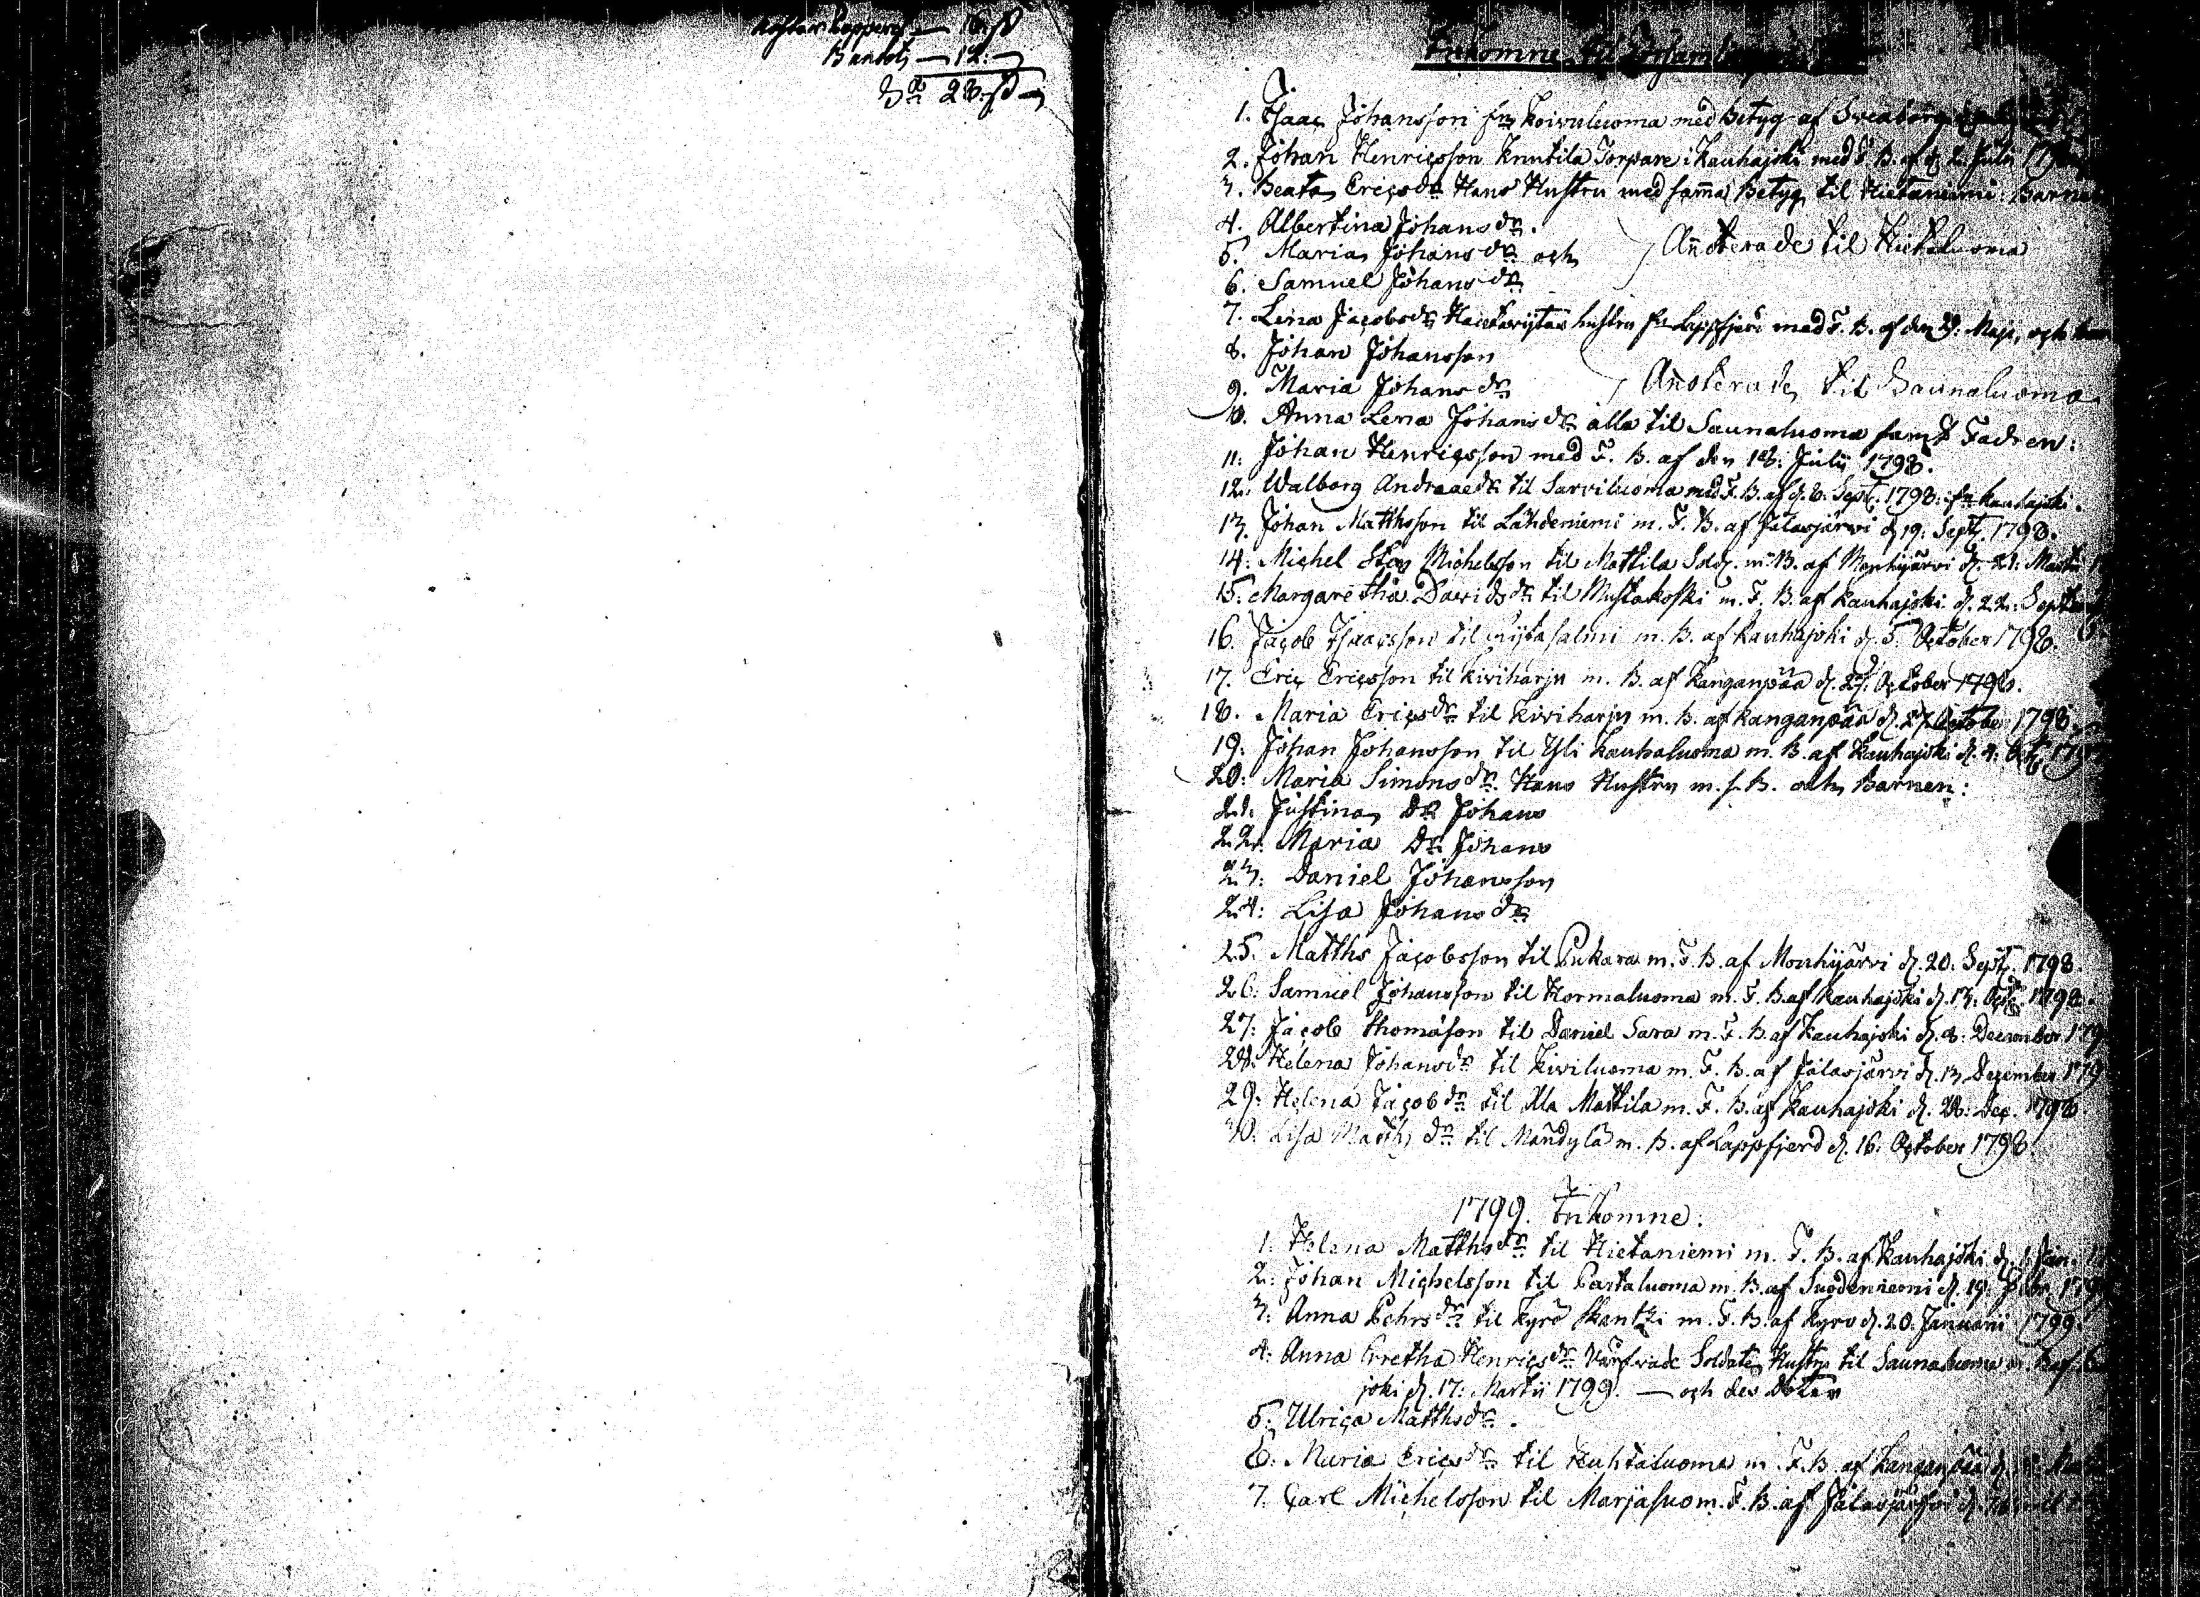 16
Bancot 12
Sa 28
Inkomne til Församlingen
1. Isaac Johansson fr. Koivuluoma med Betyg af Sveaborg
2. Johan Henricsson Knutila Torpare i Kauhajoki med F. B. af d. 2. Julii 179
3. Beata Ericsdr Hans Hustru med samma Betyg til Hietaniemi: Barne
4. Albertina Johansdr.
5. Maria Johansdr och
Anoterade til Hietaluoma
6. Samuel Johansdr
7. Lena Jacobsdr hustru fr. Lappfjerd med F. B. af den 29. Maji, och
8. Johan Johansson
9. Maria Johansdr
Anoterade til Saunaluoma
10. Anna Lena Johansdr alla til Saunaluoma samt Fadren:
11: Johan Henricsson med F. B. af den 18: Julii 1798.
12. Walborg Andreaedr til Sarviluoma med F. B. af d. 8. Sept. 1798: fr. Kauhajoki.
13. Johan Matthsson til Lähdeniemi m. F. B. af Jalasjärvi d. 19. Sept. 1798.
14: Michel Michelsson til Mattila Sold. m. B. af Mouhijärvi d. 21: Martii
15: Margaretha Davidsdr til Mustakoski m. F. B. af Kauhajoki d. 22: Septemb
16. Jacob Isaacsson til salmi m. B. af Kauhajoki d. 5. October 1798.
17. Eric Ericsson til Kiviharju m. B. af Kanganpää d. 27: October 1798.
18. Maria Ericsdr til Kiviharju m. B. af Kanganpää d. 27. October 1798.
19: Johan Johansson til Yli Kauhaluoma m. B. af Kauhajoki d. 4: Oct. 179
20: Maria Simonsdr. Hans Hustru m. s. B. och Barnen:
21: Justina Dr Johans
22: Maria Dr Johans
23: Daniel Johansson
24: Lisa Johansdr
25. Matths Jacobsson til Pukara m. F. B. af Mouhijärvi d. 20: Sept. 1798.
26: Samuel Johansson til Hormaluoma m. F. B. af Kauhajoki d. 13: Oct. 1798.
27: Jacob Thomason til Daniel Sara m. F. B. af Kauhajoki d. 8: December 179
28: Helena Johansdr til Kiviluoma m. F. B. af Jalasjärvi d. 13 December 179
29: Helena Jacobdr til Ala Mattila m. F. B. af Kauhajoki d. 28: Dec. 1798
30: Lisa Matthsdr til Mandyla m. B. af Lappfjerd d. 16: October 1798.
1799. Inkomne:
1: Helena Matthsdr til Hietaniemi m. F. B. af Kauhajoki d. 1. Jan.
2: Johan Michelsson til Partaluoma m. B. af Suodenniemi d. 19. Febr. 179
3: Anna Pehrsdr til Kyrö Skantzi m. F. B. af Kyro d. 20. Januarii 1799.
4: Anna Gretha Henricsdr Värfvade Soldatens Hustru til Saunaluoma m. B. af
joki d. 17: Martii 1799. — och des Doter
5: Ulrica Matthsdr.
6: Maria Ericsdr til Huhtaluoma m. F. B. af Kanganpää d.
7. Carl Michelsson til Marjasuo m. F. B. af Jalasjärfvi d.